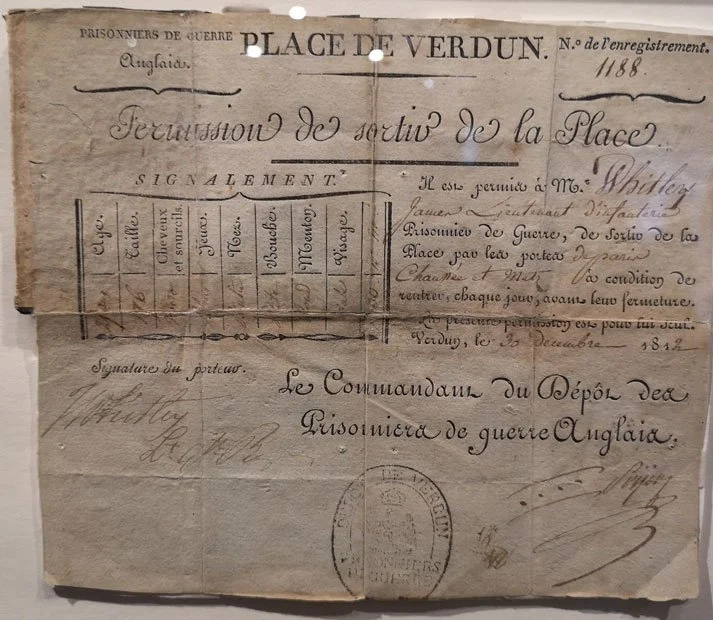 PRISONNIERS DE GUERRE
Anglais.
PLACE DE VERDUN.
N.º de l'enregistrement.
1188.
Permission de sortir de la Place.
SIGNALEMENT.
Age.
Taille.
Cheveux et sourcils.
Yeux.
Nez.
Bouche.
Menton.
Visage.
Il est permis à M.r Whitley
James Lieutenant d'infanterie
Prisonnier de Guerre, de sortir de la
Place par les portes de paris
Chaussée et Metz à condition de
rentrer, chaque jour, avant leur fermeture.
La présente permission est pour lui seul.
Verdun, le 30 decembre 1812
Signature du porteur.
J Whitley
Lt 9th R
Le Commandant du Dépôt des
Prisonniers de guerre Anglais,
PLACE DE VERDUN
PRISONNIERS
DE GUERRE